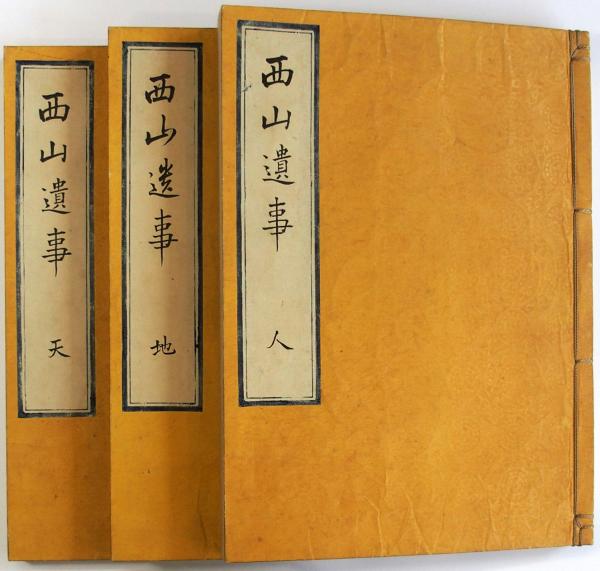 西山遺事 天
西山遺事 地
西山遺事 人